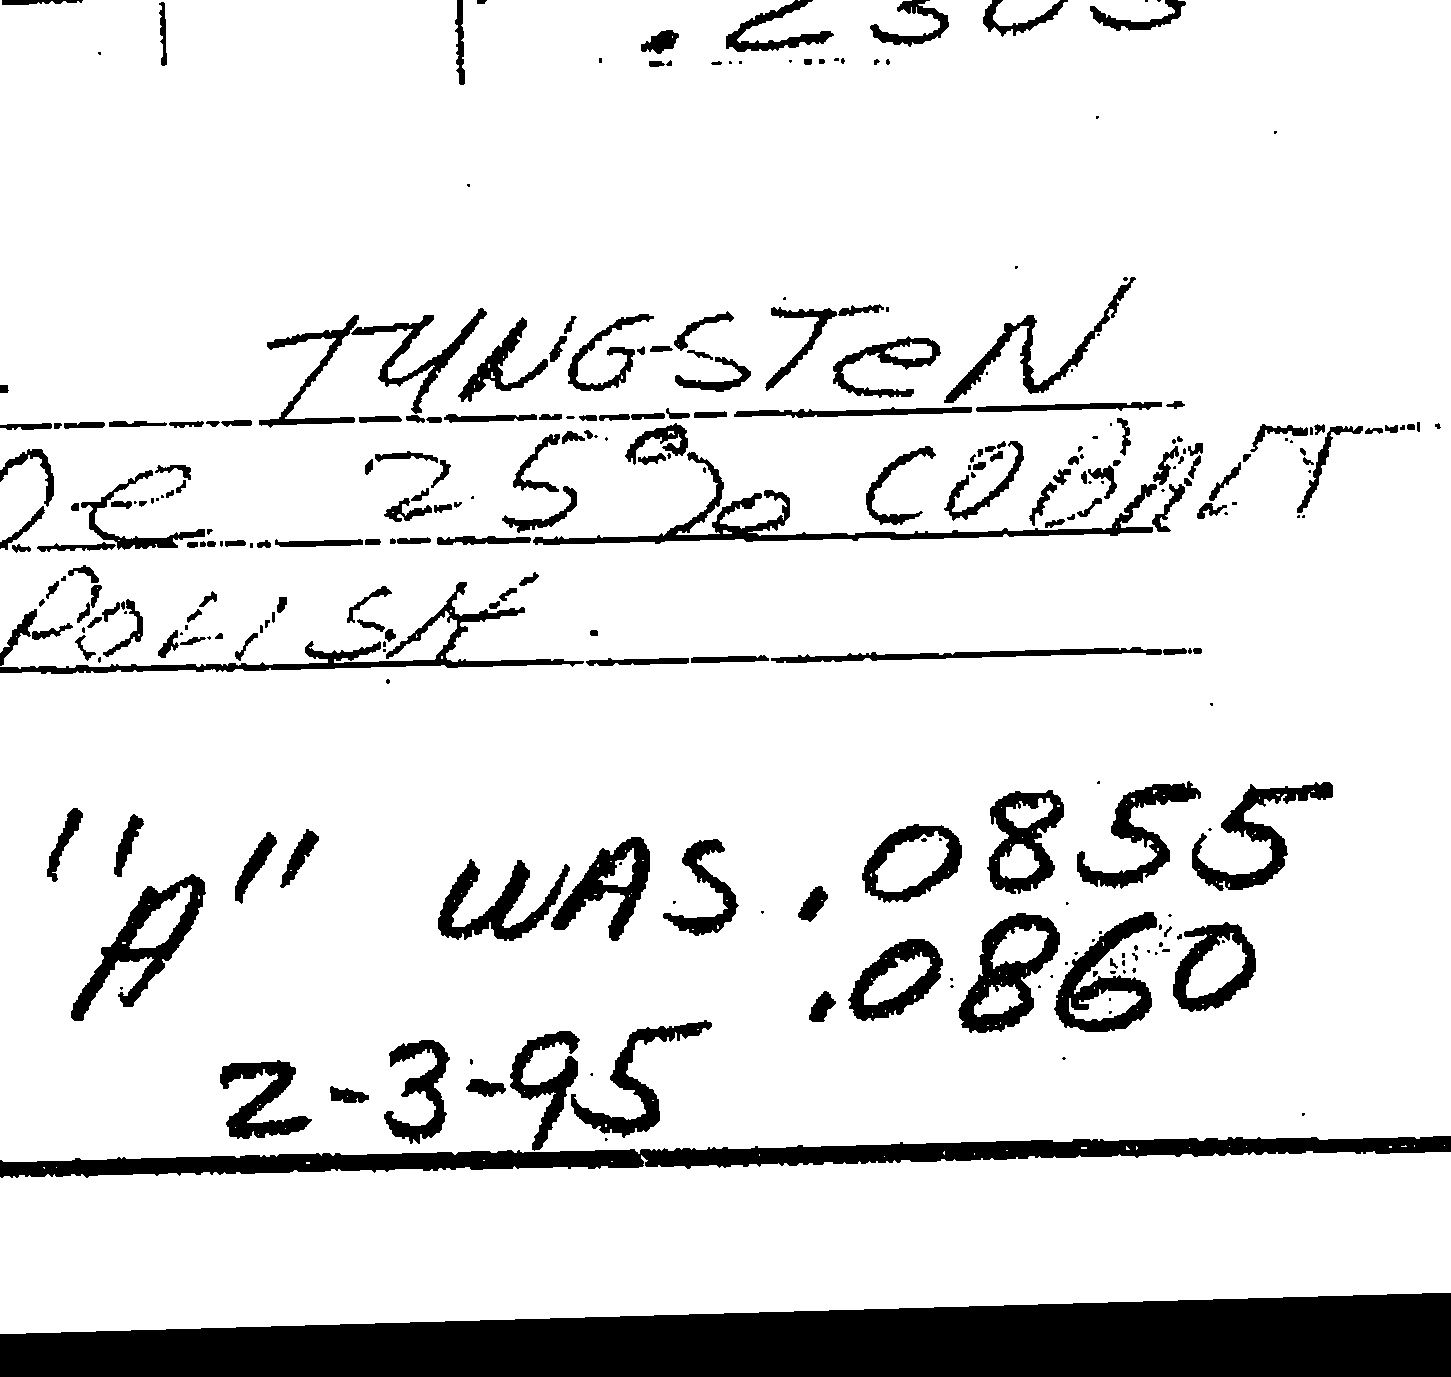 TUNGSTEN
25% COBALT
POLISH
"A" WAS .0855
.0860
2-3-95